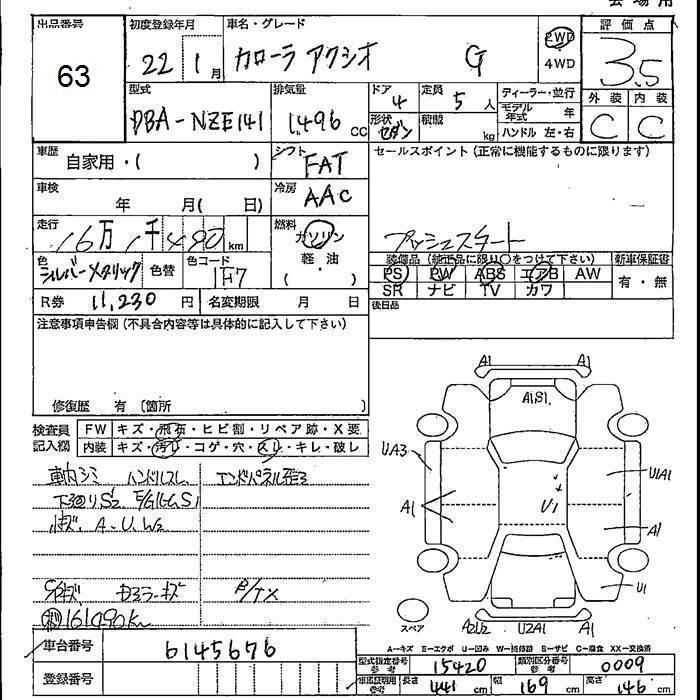 出品番号 63
初度登録年月 22 1月
車名・グレード カローラ アクシオ G
2WD 4WD
評価点 3.5
外装 C 内装 C
型式 DBA-NZE141
排気量 1.496 CC
ドア 4
定員 5 人
形状 セダン
積載 kg
ディーラー・並行
モデル年式 年
ハンドル 左・右
車歴 自家用・( )
シフト FAT
セールスポイント(正常に機能するものに限ります)
プッシュスタート
車検 年 月( 日)
冷房 AAC
走行 16万1千490km
燃料 ガソリン 軽・油
色 シルバーメタリック 色替 色コード 1F7
装備品(純正品に限り○をつけて下さい) 新車保証書
PS PW ABS エアB AW 有・無
SR ナビ TV カワ
R券 11,230 円 名変期限 月 日
後日品
注意事項申告欄(不具合内容等は具体的に記入して下さい)
修復歴 有 (箇所 )
検査員記入欄
FW キズ・飛石・ヒビ割・リペア跡・X要
内装 キズ・汚れ・コゲ・穴・スレ・キレ・破レ
車内シミ ハンドルスレ
下廻りS2
小キズ. A. U. W2
161490Km
A1 A1
A1S1
UA3
U1A1
A1
U1
A1
U1
スペア
A2U2 U2A1 A1
A-キズ E-エクボ U-凹み W-補修跡 S-サビ C-腐食 XX-交換済
車台番号 6145676
登録番号
型式指定番号 参考 15420 類別区分番号 参考 0009
車庫証明用 参考 長さ 441 cm 幅 169 cm 高さ 146 cm